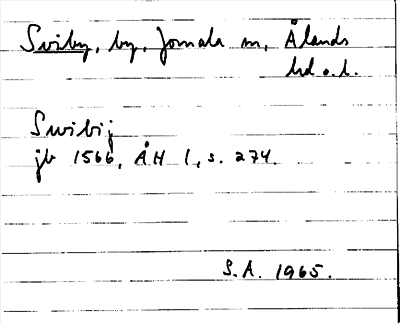 Sviby, by, Jomala sn, Ålands
hd o. l.
Swibij
jb 1566, ÅH 1, s. 274.
S.A. 1965.